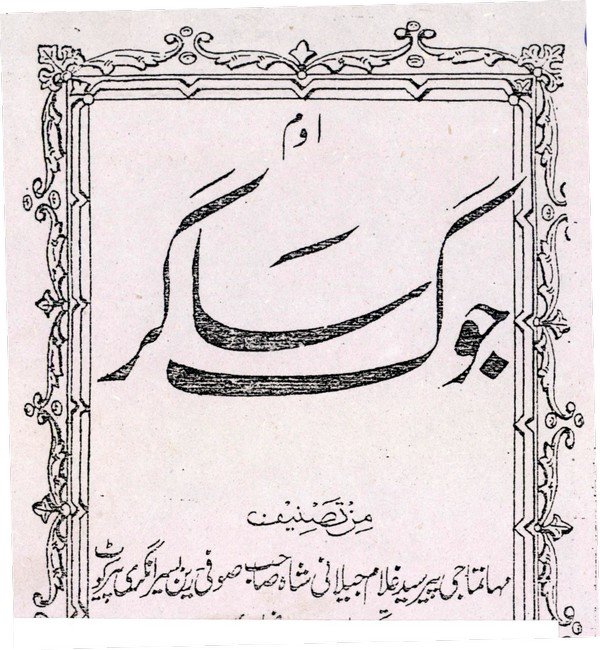 اوم
جوگ ساگر
من تصنیف
مہاتما جی پیر سید غلام جیلانی شاہ صاحب صوفی رین بسیرا نگری